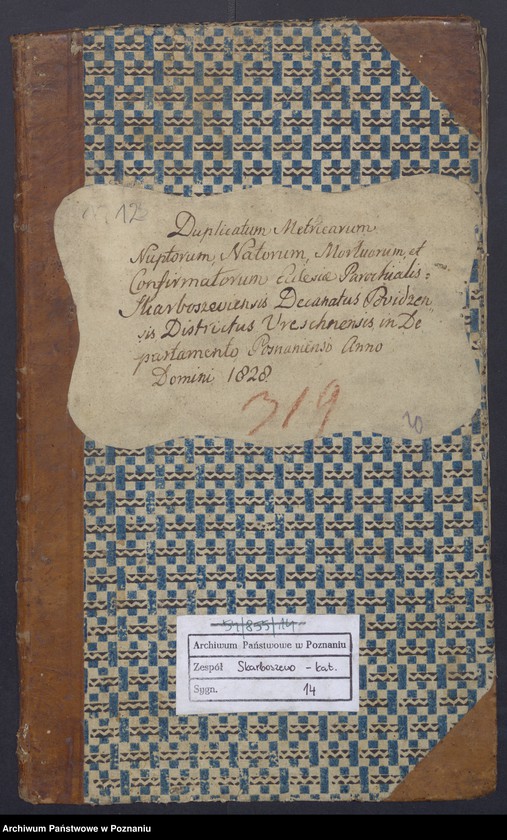 12
Duplicatum Metricarum
Nuptorum, Natorum, Mortuorum, et
Confirmatorum Eclesiæ Parochialis=
Skarboszeviensis Decanatus
sis Districtus Vreschnensis in De
partamento Posnaniensi Anno
Domini, 1828.
319
20
51/855/14
Archiwum Państwowe w Poznaniu
Zespół Skarboszewo - kat.
Sygn. 14
Archiwum Państwowe w Poznaniu